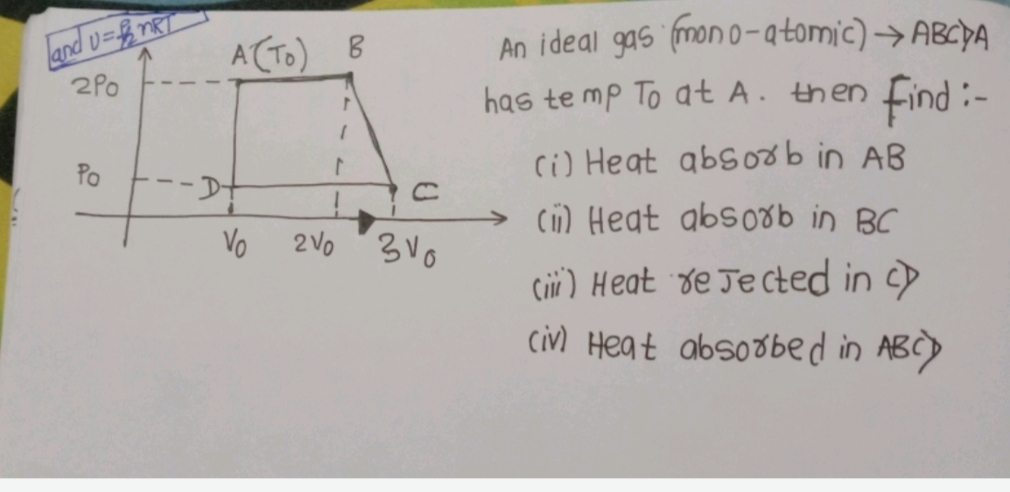 and U = f/2 nRT
A(To) B
2Po
Po
D C
Vo 2Vo 3Vo
An ideal gas (mono-atomic) → ABCDA
has temp To at A. then find :-
(i) Heat absorb in AB
(ii) Heat absorb in BC
(iii) Heat reJected in CD
(iv) Heat absorbed in ABCD